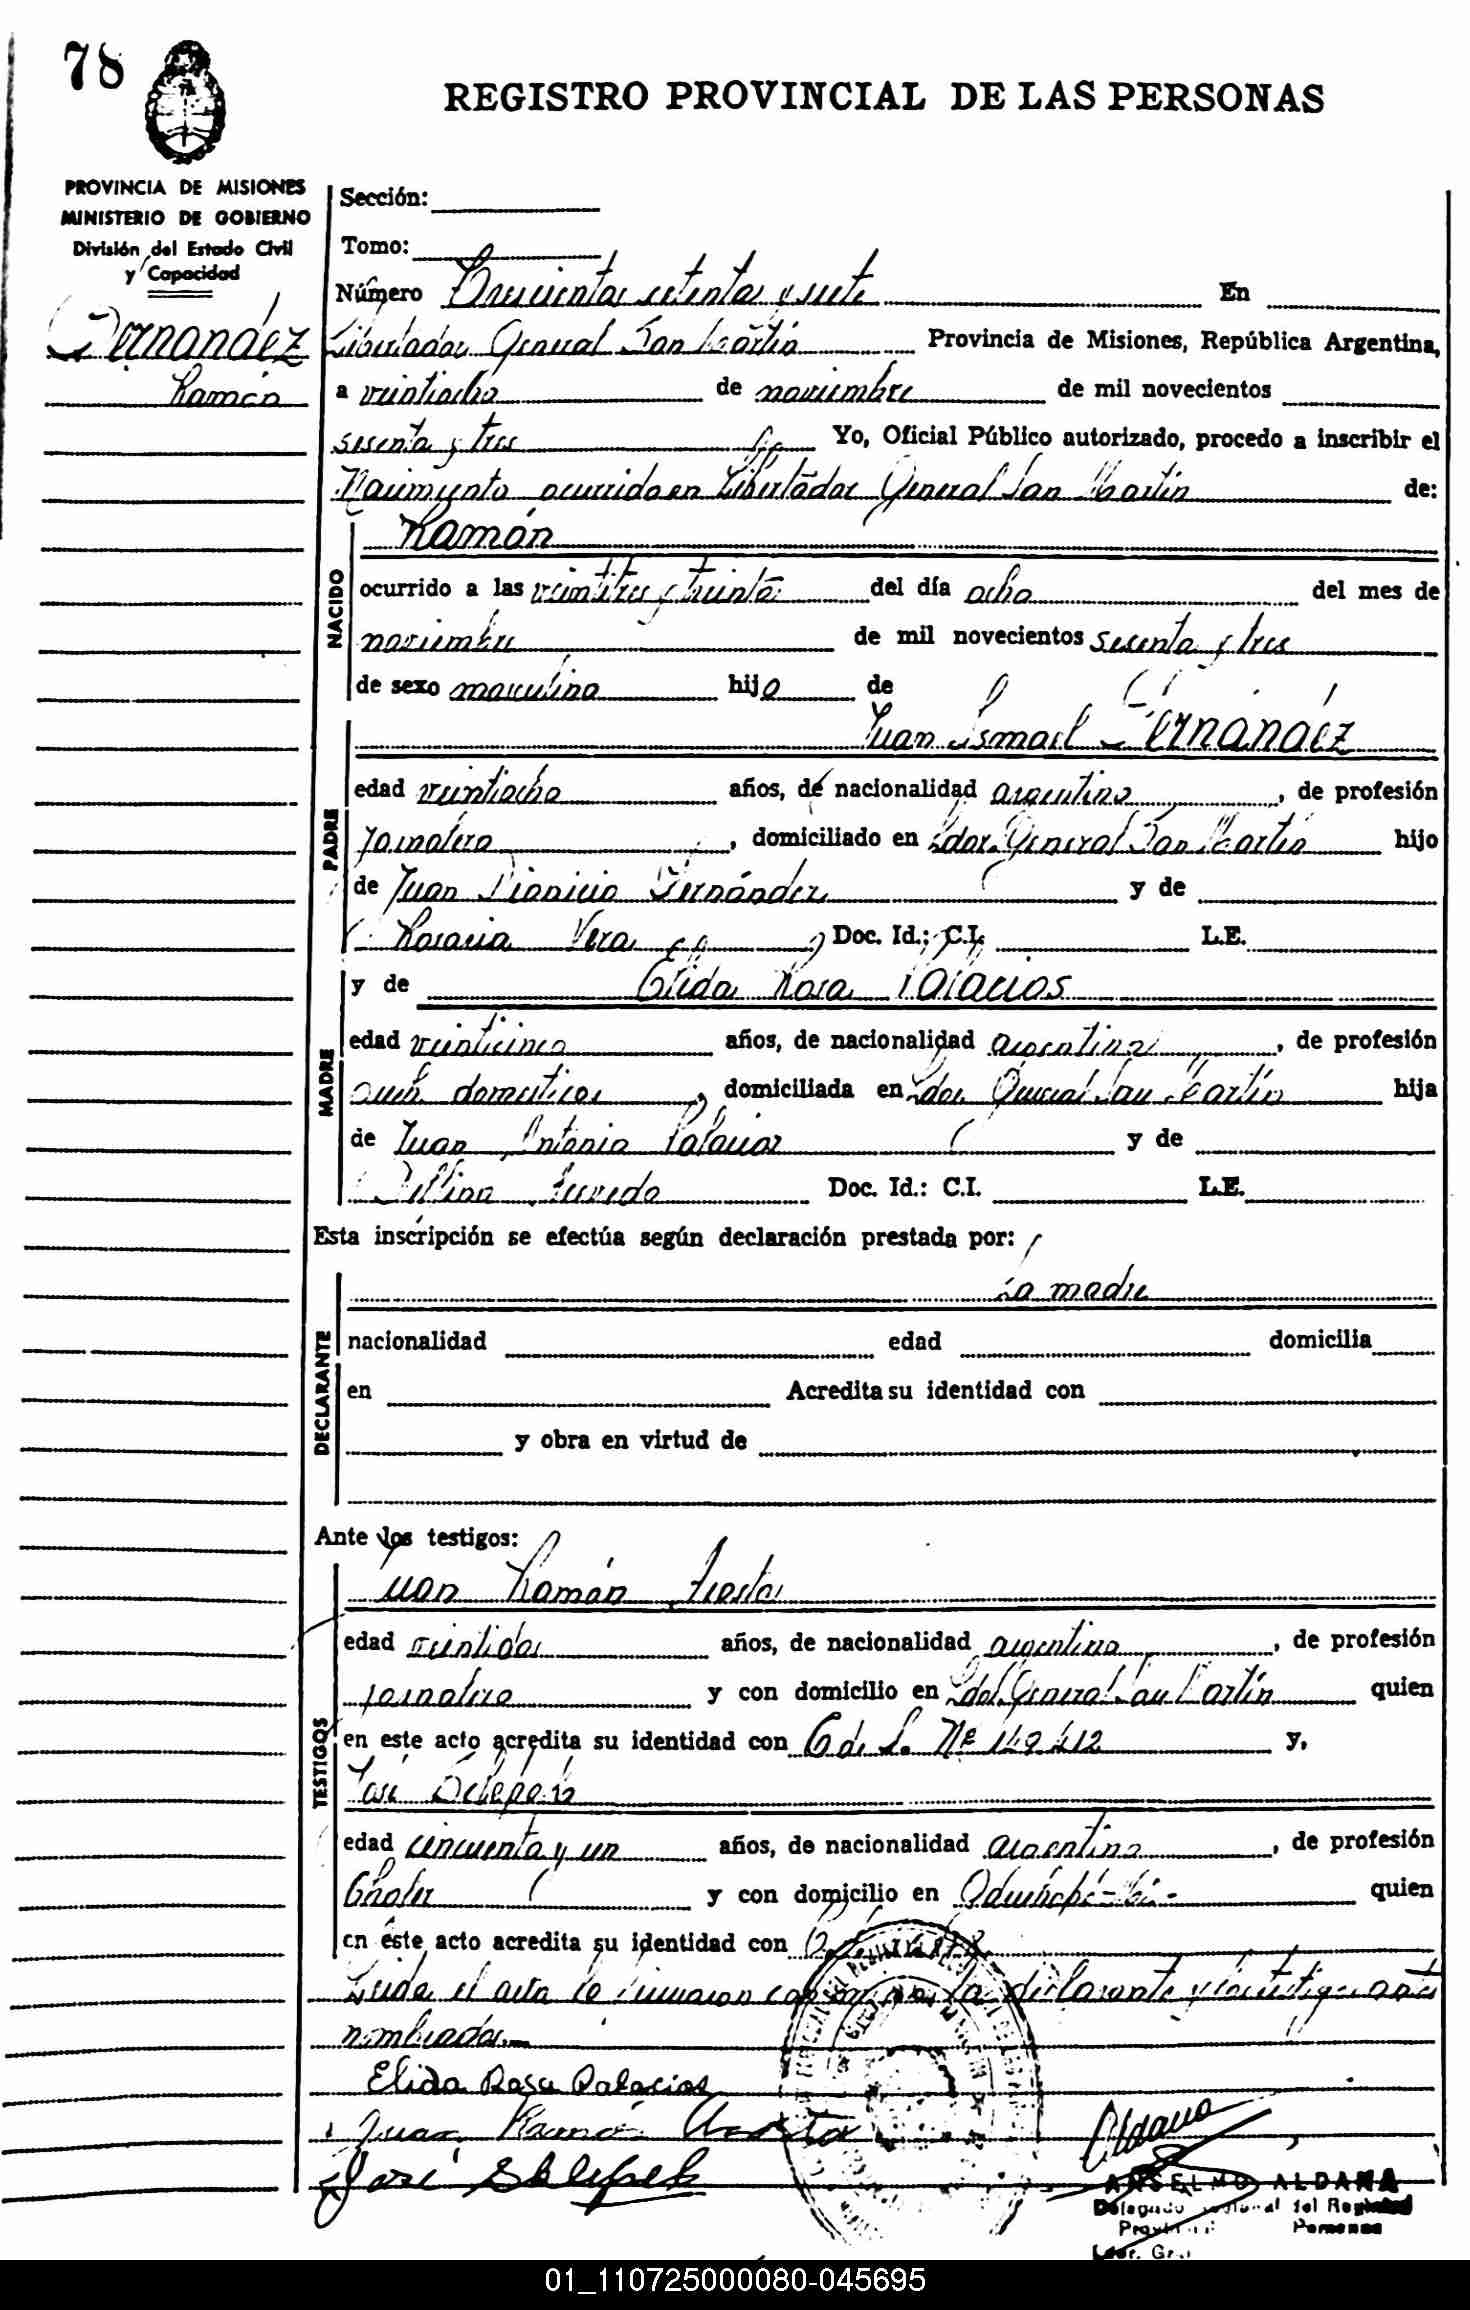 78
REGISTRO PROVINCIAL DE LAS PERSONAS
PROVINCIA DE MISIONES
MINISTERIO DE GOBIERNO
División del Estado Civil
y Capacidad
Fernández
Ramón
Sección:
Tomo:
Número Trescientos setenta y siete En
Libertador General San Martín Provincia de Misiones, República Argentina,
a veintiocho de noviembre de mil novecientos
sesenta y tres Yo, Oficial Público autorizado, procedo a inscribir el
Nacimiento ocurrido en Libertador General San Martín de:
NACIDO
Ramón
ocurrido a las veintitres y treinta del día ocho del mes de
noviembre de mil novecientos sesenta y tres
de sexo masculino hijo de
PADRE
Juan Ismael Fernández
edad veintiocho años, de nacionalidad argentina, de profesión
jornalero, domiciliado en Ldor. General San Martín hijo
de Juan Dionicio Fernández y de
Rosaria Vera Doc. Id.: C.I. L.E.
MADRE
y de Elida Rosa Palacios
edad veinticinco años, de nacionalidad argentina, de profesión
domesticos, domiciliada en Ldor General San Martín hija
de Juan Antonio Palacios y de
Doc. Id.: C.I. L.E.
Esta inscripción se efectúa según declaración prestada por:
DECLARANTE
La madre
nacionalidad edad domicilia
en Acredita su identidad con
y obra en virtud de
Ante los testigos:
TESTIGOS
Juan Ramón
edad veintidos años, de nacionalidad argentina, de profesión
jornalero y con domicilio en Ldor. General San Martín quien
en este acto acredita su identidad con C de I. Nº 149412 y,
José Sklepek
edad cincuenta y un años, de nacionalidad argentina, de profesión
Chofer y con domicilio en quien
en este acto acredita su identidad con
Leida el acta la firmaron la declarante y los testigos antes
nombrados.
Elida Rosa Palacios
Juan Ramón Acosta
José Sklepek
Aldana
ANSELMO ALDANA
Delegado del Registro
Personas
Ldor. Gral
01_110725000080-045695